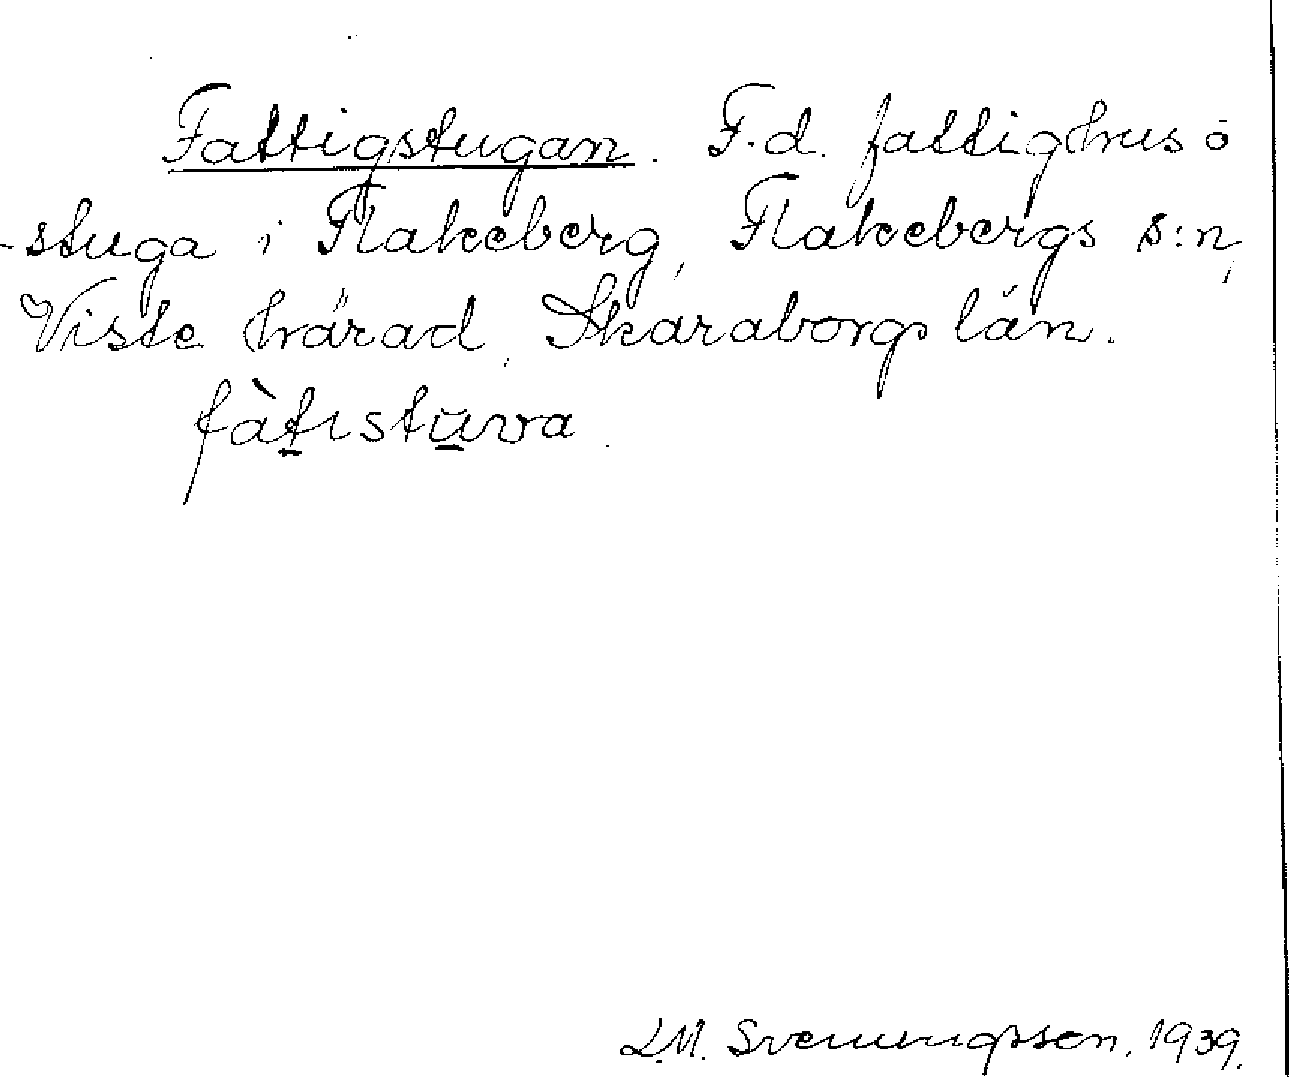 Fattigstugan. F.d. fattighus o
-stuga i Flakeberg, Flakebergs s:n,
Viste härad, Skaraborgs län.
fàt̲ıstu̲va.
L.M. Svenungsson, 1939.